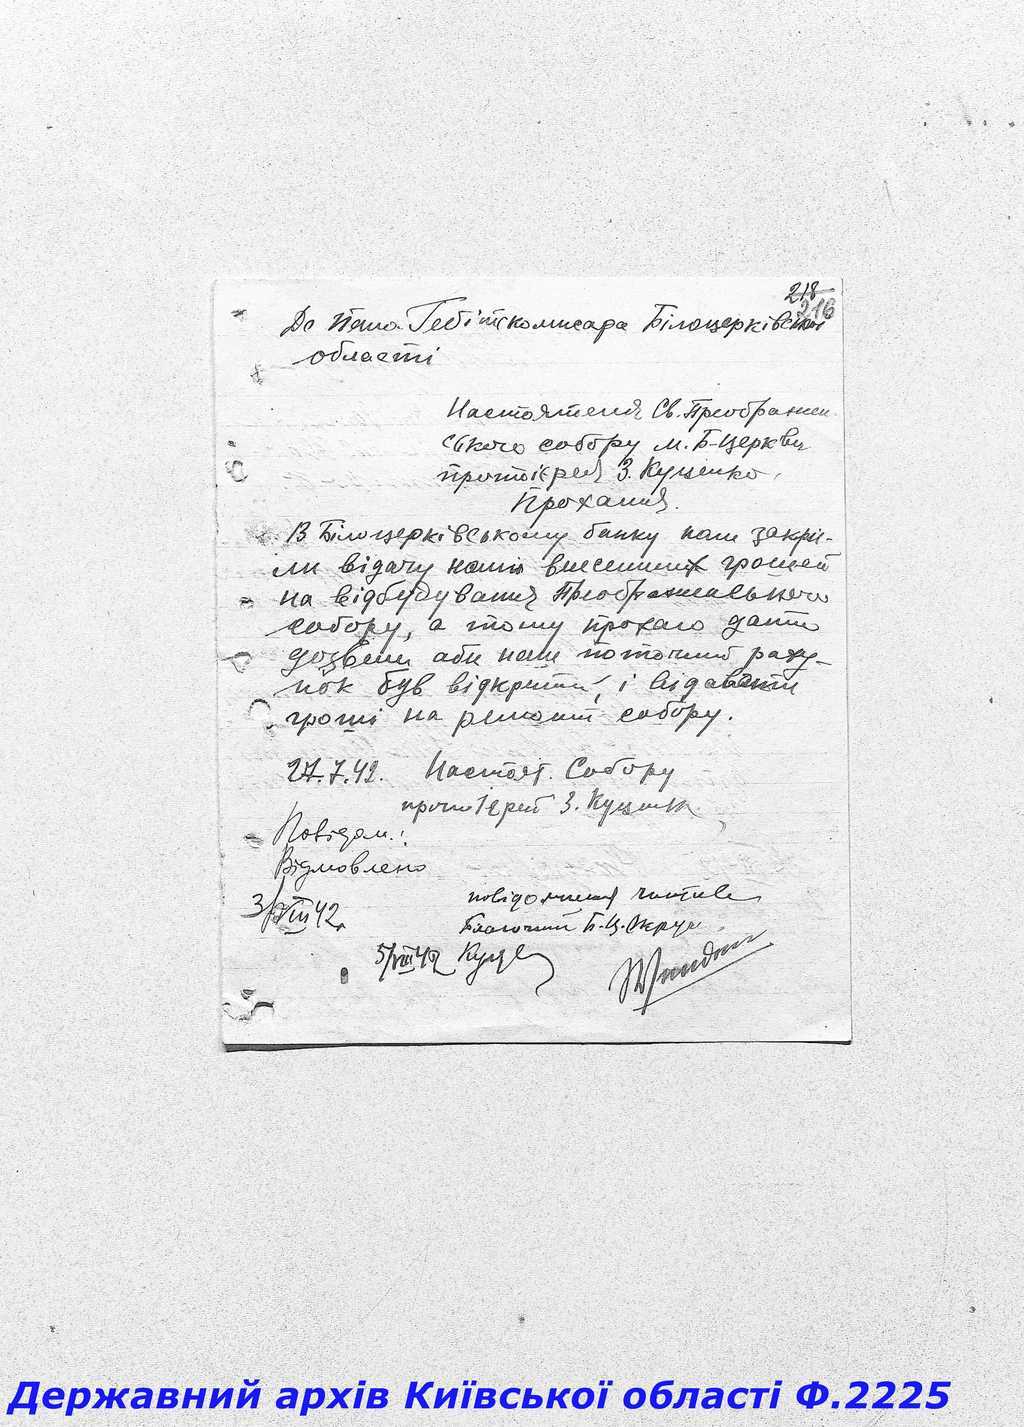 218
216
До Пана Гебітскомисара Білоцерківської
области
Настоятеля Св. Преображен
ського собору м. Б-Церкви
протоієрея З. Куценко.
Прохання.
В Білоцерківському банку нам закри-
ли відачу нами внесенних грошей
на відбудування Преображенського
собору, а тому прохаю дати
дозвіл аби наш поточний раху-
нок був відкритий, і відавати
гроші на ремонт собору.
27.7.42. Настоят. Собору
протоієрей З. Куценко
Повідом.:
Відмовлено
3/VIII 42
повідомлення читав
Благочиний Б.-Ц. округи
5/VIII 42
Державний архів Київської області Ф.2225